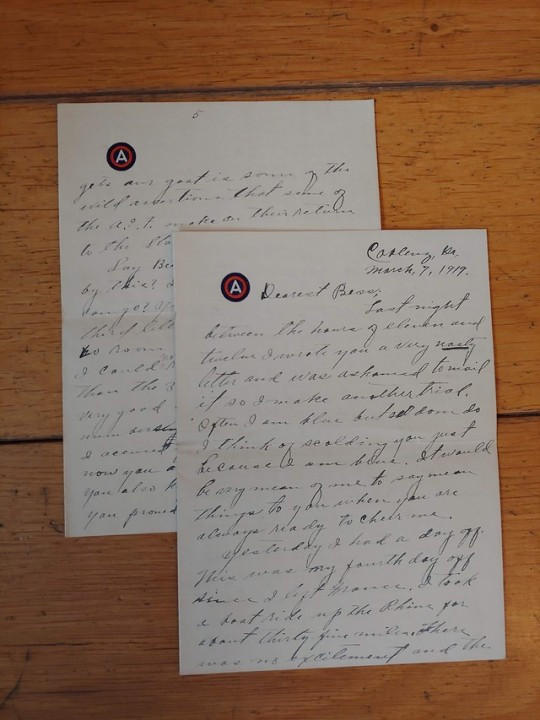 5
A
gets our goat is some of the
wild assertions that some of
the A.E.F. make on their return
to the Sta
Say Be
by this?
can go?
third lett
to room
I could
than the
very good
num
I
now you a
you also
you
A
Coblenz,
March, 7, 1919.
Dearest Bess,
Last night
between the hours of eleven and
twelve I wrote you a very nasty
letter and was ashamed to mail
it so I make another trial.
Often I am blue but seldom do
I think of scolding you just
because I am blue. It would
be very mean of me to say mean
things to you when you are
always ready to cheer me.
Yesterday I had a day off.
This was my fourth day off
since I left France. I took
a boat ride up the Rhine for
about thirty five miles. There
was no excitement and the